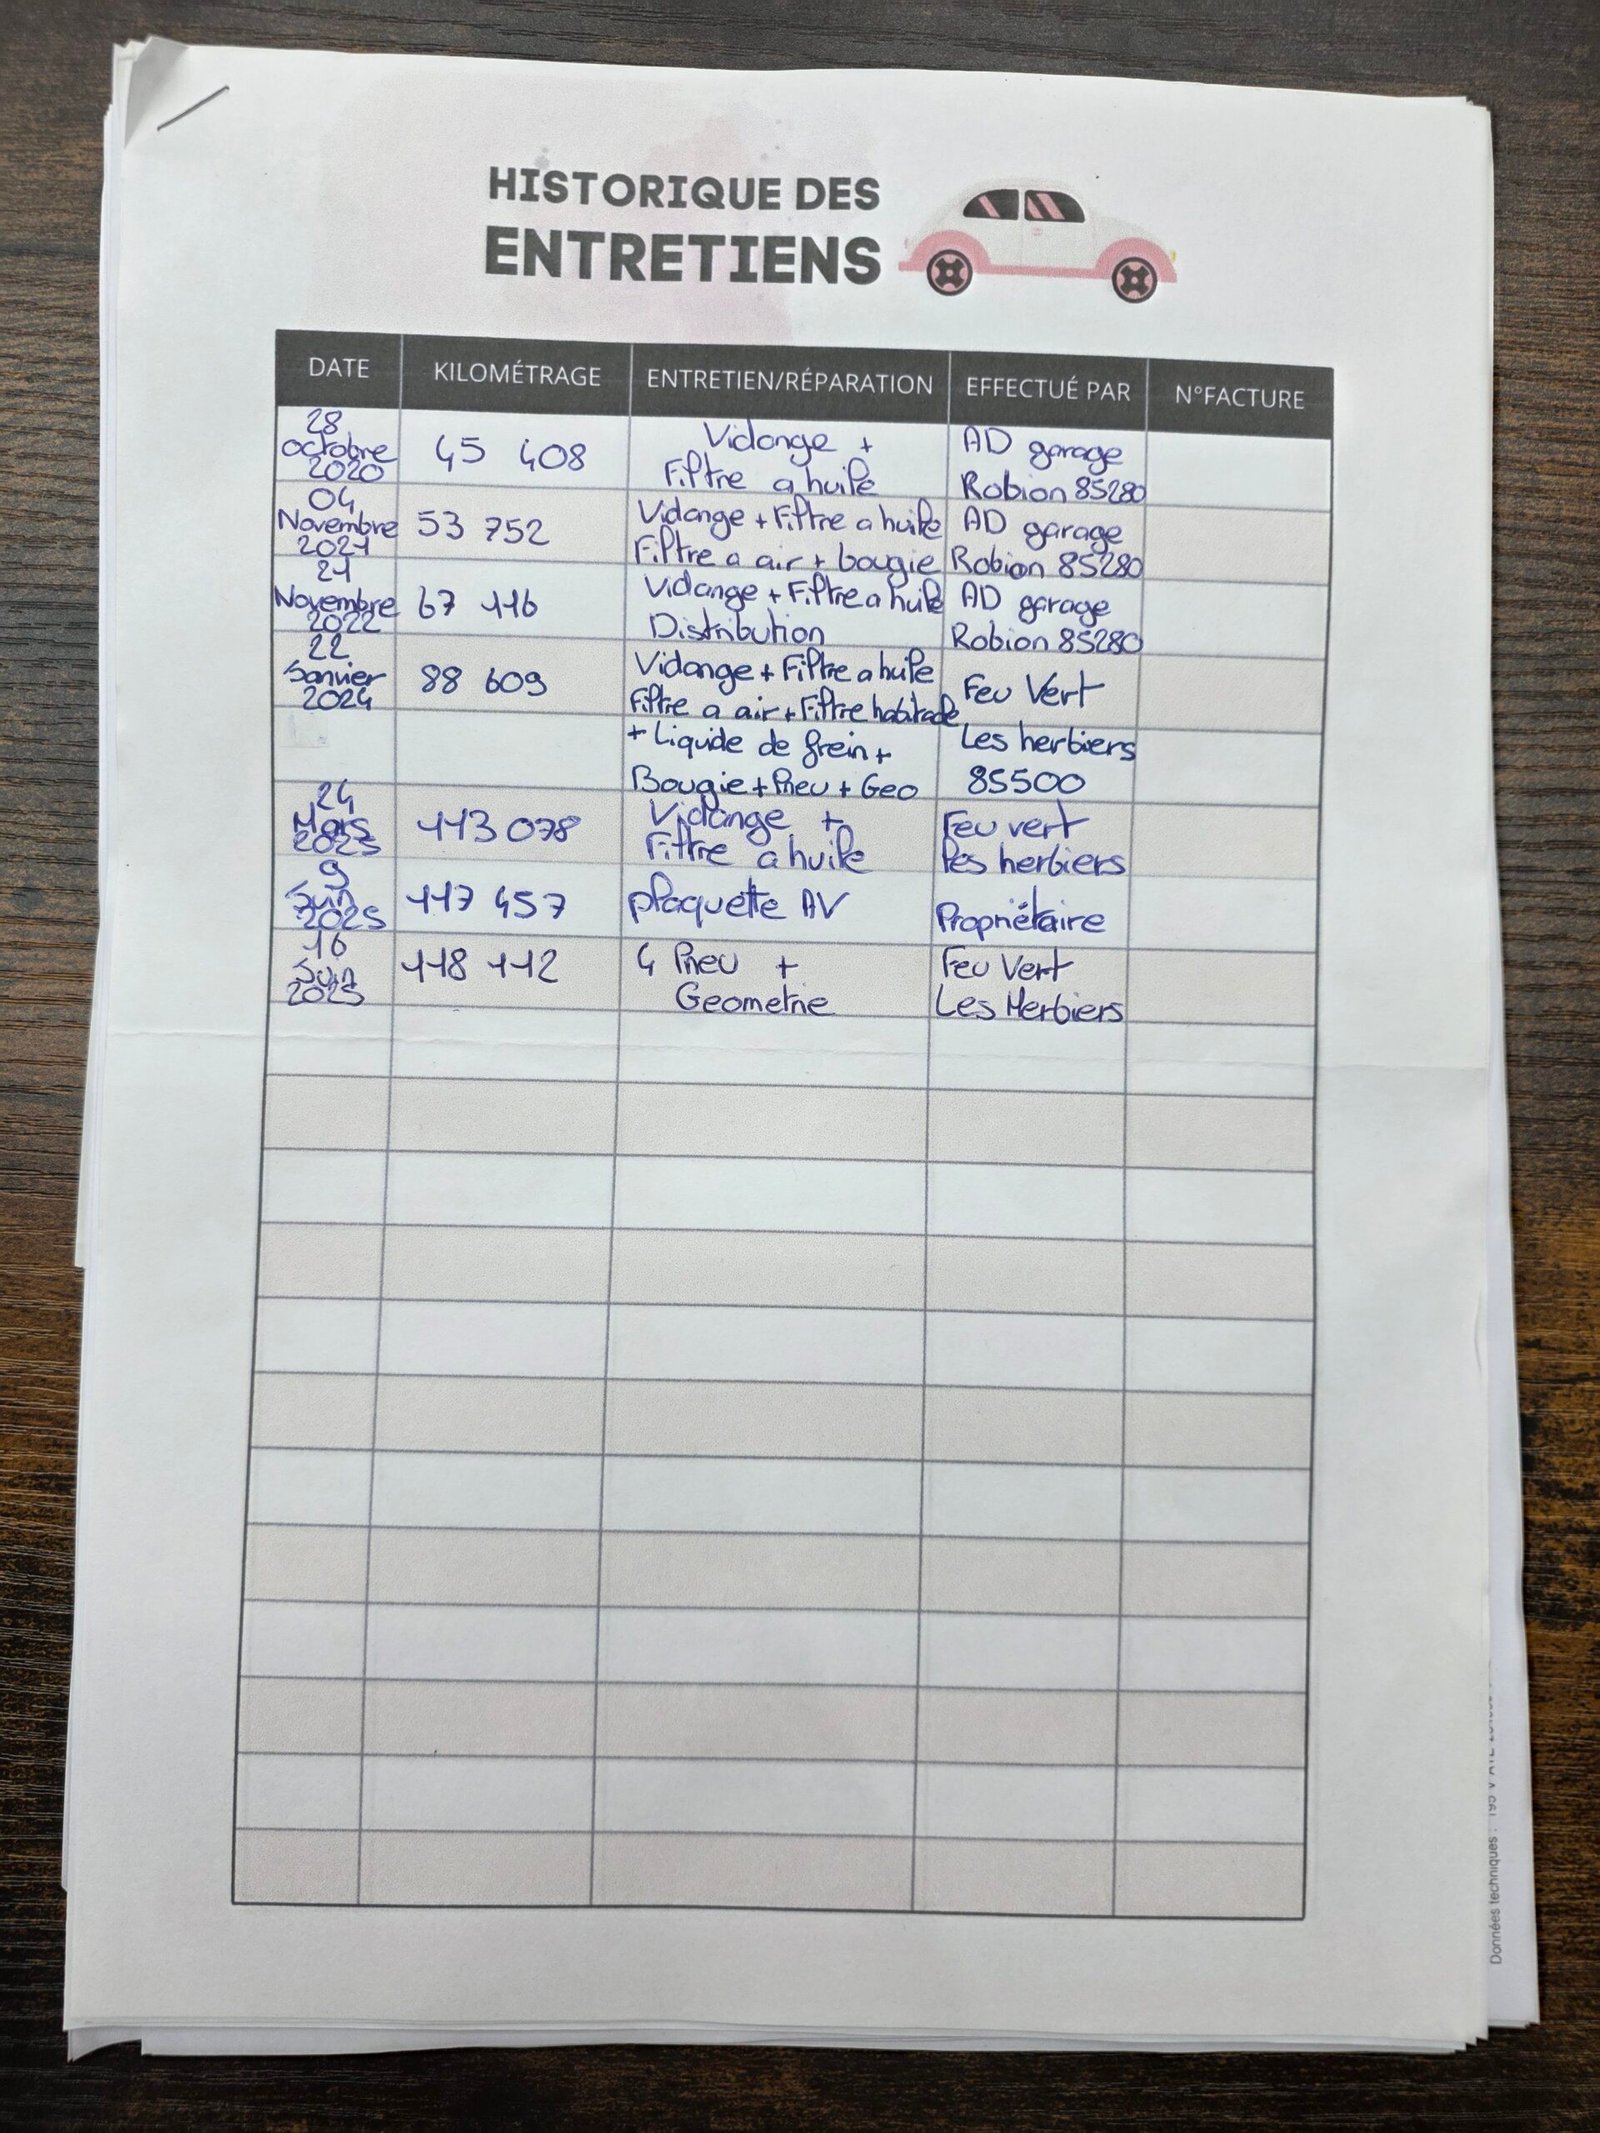 HISTORIQUE DES
ENTRETIENS
DATE KILOMÉTRAGE ENTRETIEN/RÉPARATION EFFECTUÉ PAR N°FACTURE
28
octobre
2020
45 408
Vidange +
Filtre a huile
AD garage
Robion 85280
04
Novembre
2021
53 752
Vidange + Filtre a huile
Filtre a air + bougie
AD garage
Robion 85280
21
Novembre
2022
67 116
Vidange + Filtre a huile
Distribution
AD garage
Robion 85280
22
Janvier
2024
88 609
Vidange + Filtre a huile
Filtre a air + Filtre habitacle
+ Liquide de frein +
Bougie + Pneu + Geo
Feu Vert
Les herbiers
85500
24
Mars
2025
113 078
Vidange +
Filtre a huile
Feu vert
les herbiers
9
Juin
2025
117 457
plaquette AV
Propriétaire
16
Juin
2025
118 112
4 Pneu +
Geometrie
Feu Vert
Les Herbiers
Données techniques :